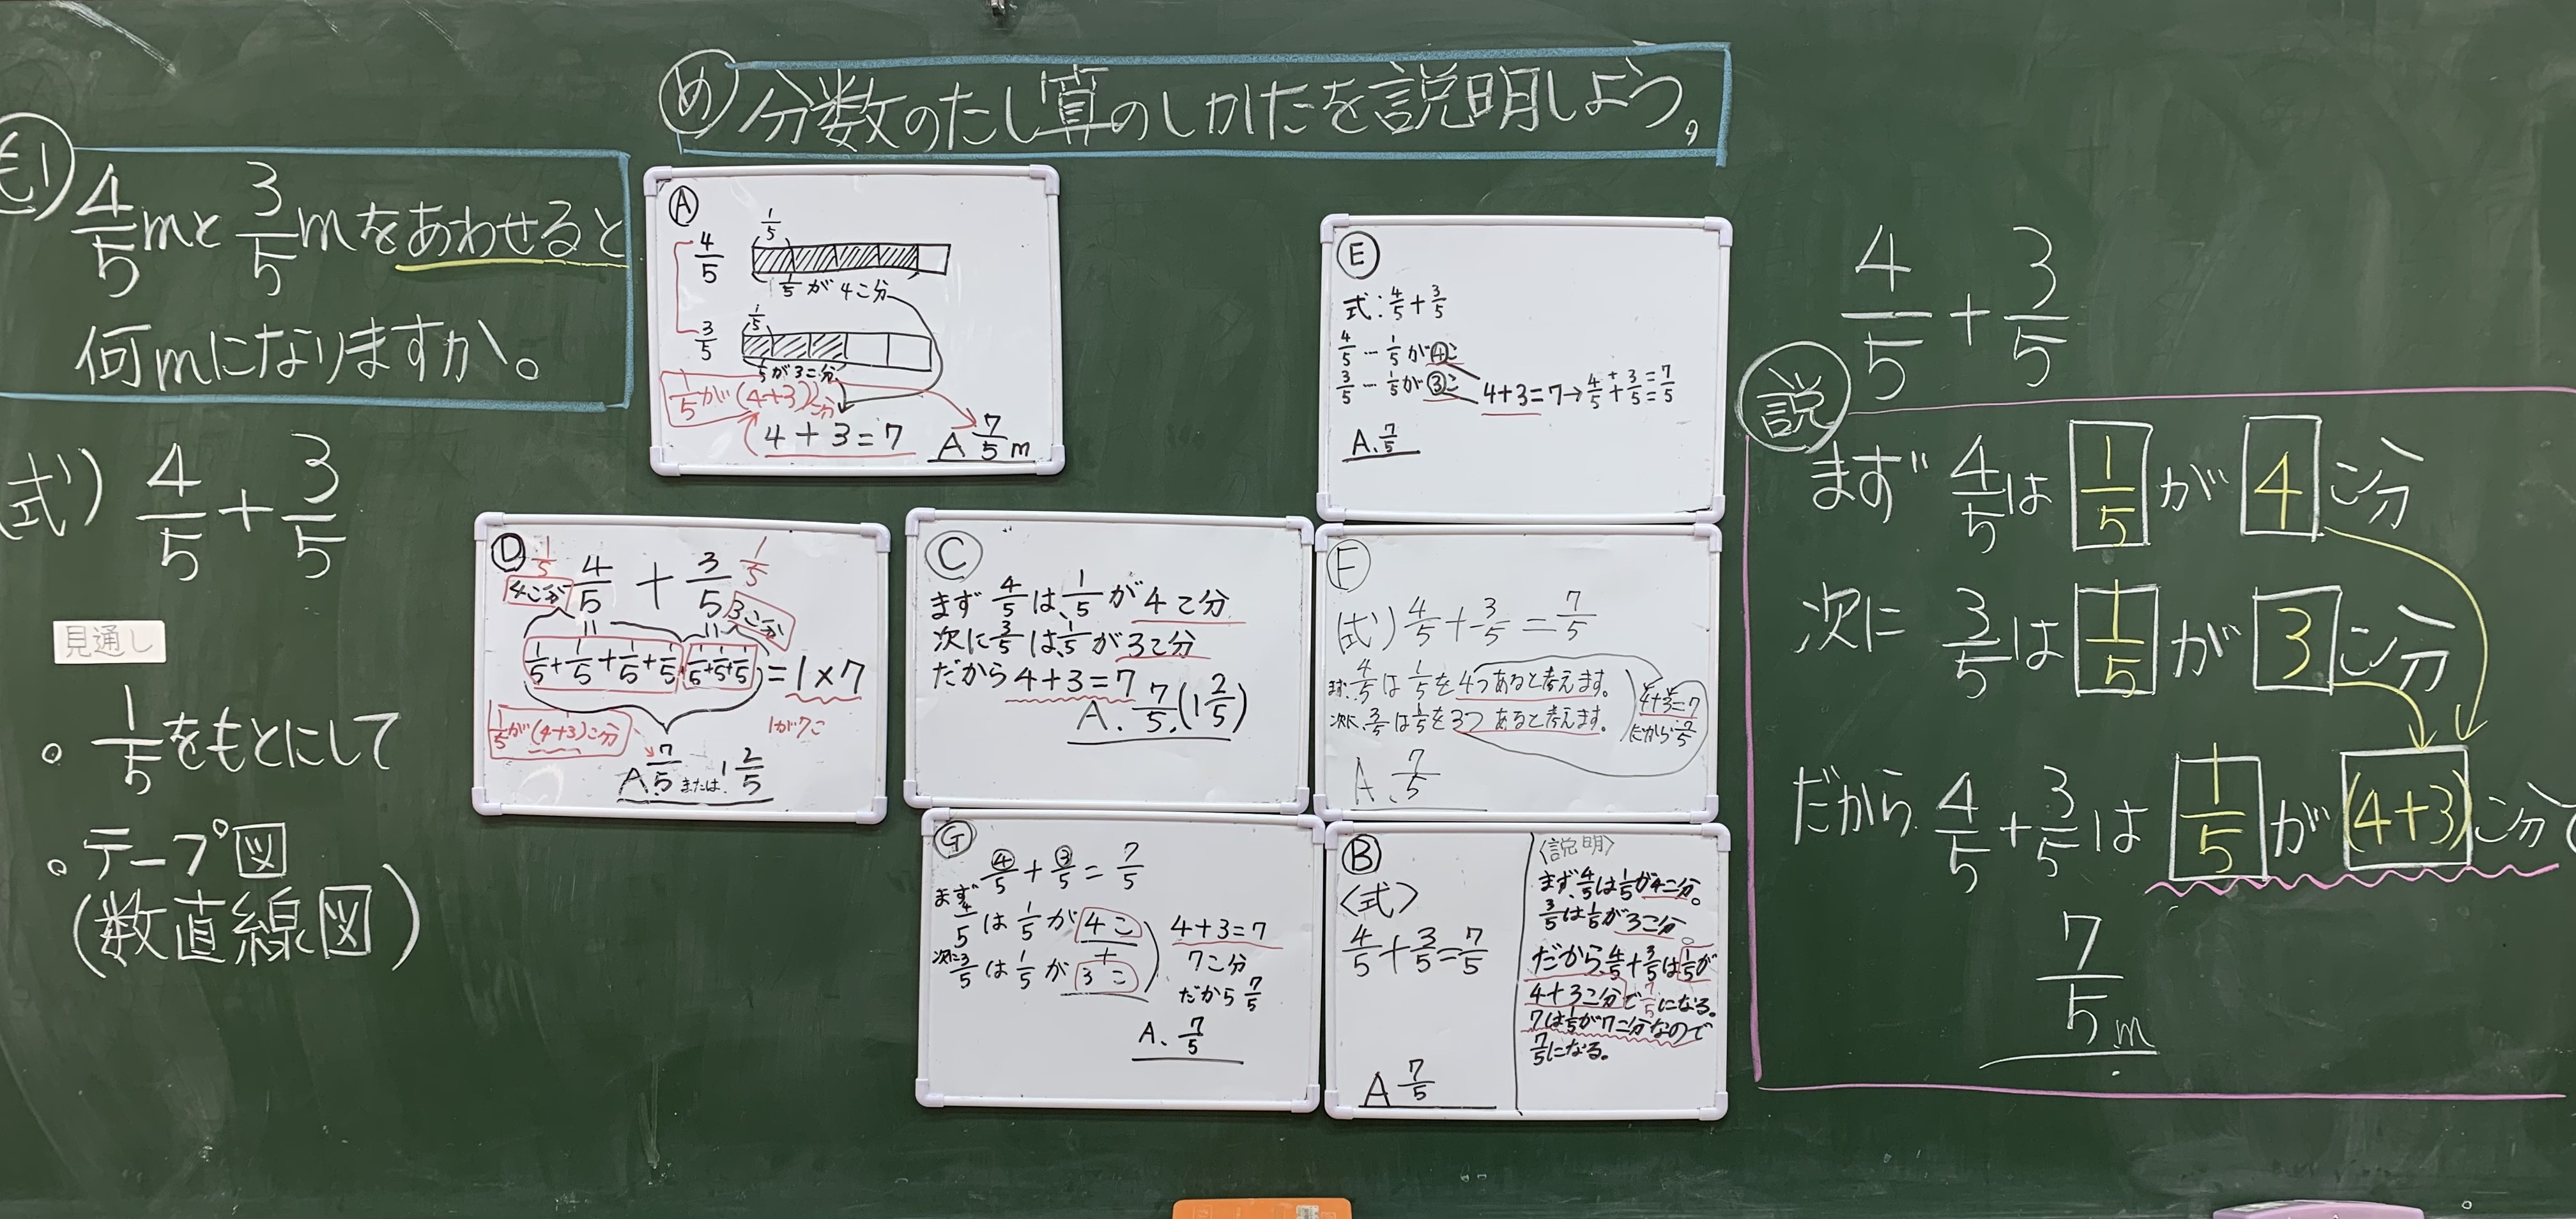 め 分数のたし算のしかたを説明しよう。
も1
4/5mと3/5mをあわせると
何mになりますか。
(式) 4/5+3/5
見通し
・1/5をもとにして
・テープ図
(数直線図)
A
1/5
4/5
1/5が4こ分
1/5
3/5
1/5が3こ分
1/5が(4+3)こ分
4+3=7
A 7/5m
D
1/5 1/5
4こ分 4/5+3/5 3こ分
1/5+1/5+1/5+1/5+1/5+1/5+1/5=1×7
1が7こ
1/5が(4+3)こ分
A 7/5または1 2/5
C
まず4/5は、1/5が4こ分
次に3/5は、1/5が3こ分
だから4+3=7
A. 7/5.(1 2/5)
G
4/5+3/5=7/5
まず
4/5は1/5が4こ
+
次に3/5は1/5が3こ
4+3=7
7こ分
だから7/5
A、7/5
E
式:4/5+3/5
4/5―1/5が4こ
3/5―1/5が3こ
4+3=7→4/5+3/5=7/5
A.7/5
F
(式)4/5+3/5=7/5
まず、4/5は1/5を4つあると考えます。
次に、3/5は1/5を3つあると考えます。
4+3=7
A.7/5
B
〈式〉
4/5+3/5=7/5
A 7/5
〈説明〉
まず、4/5は1/5が4こ分。
3/5は1/5が3こ分。
だから、4/5+3/5は1/5が
4+3こ分で7/5になる。
7は1/5が7こ分なので
7/5になる。
4/5+3/5
説
まず 4/5は 1/5 が 4 こ分
次に 3/5は 1/5 が 3 こ分
だから 4/5+3/5は 1/5 が (4+3) こ分
7/5m